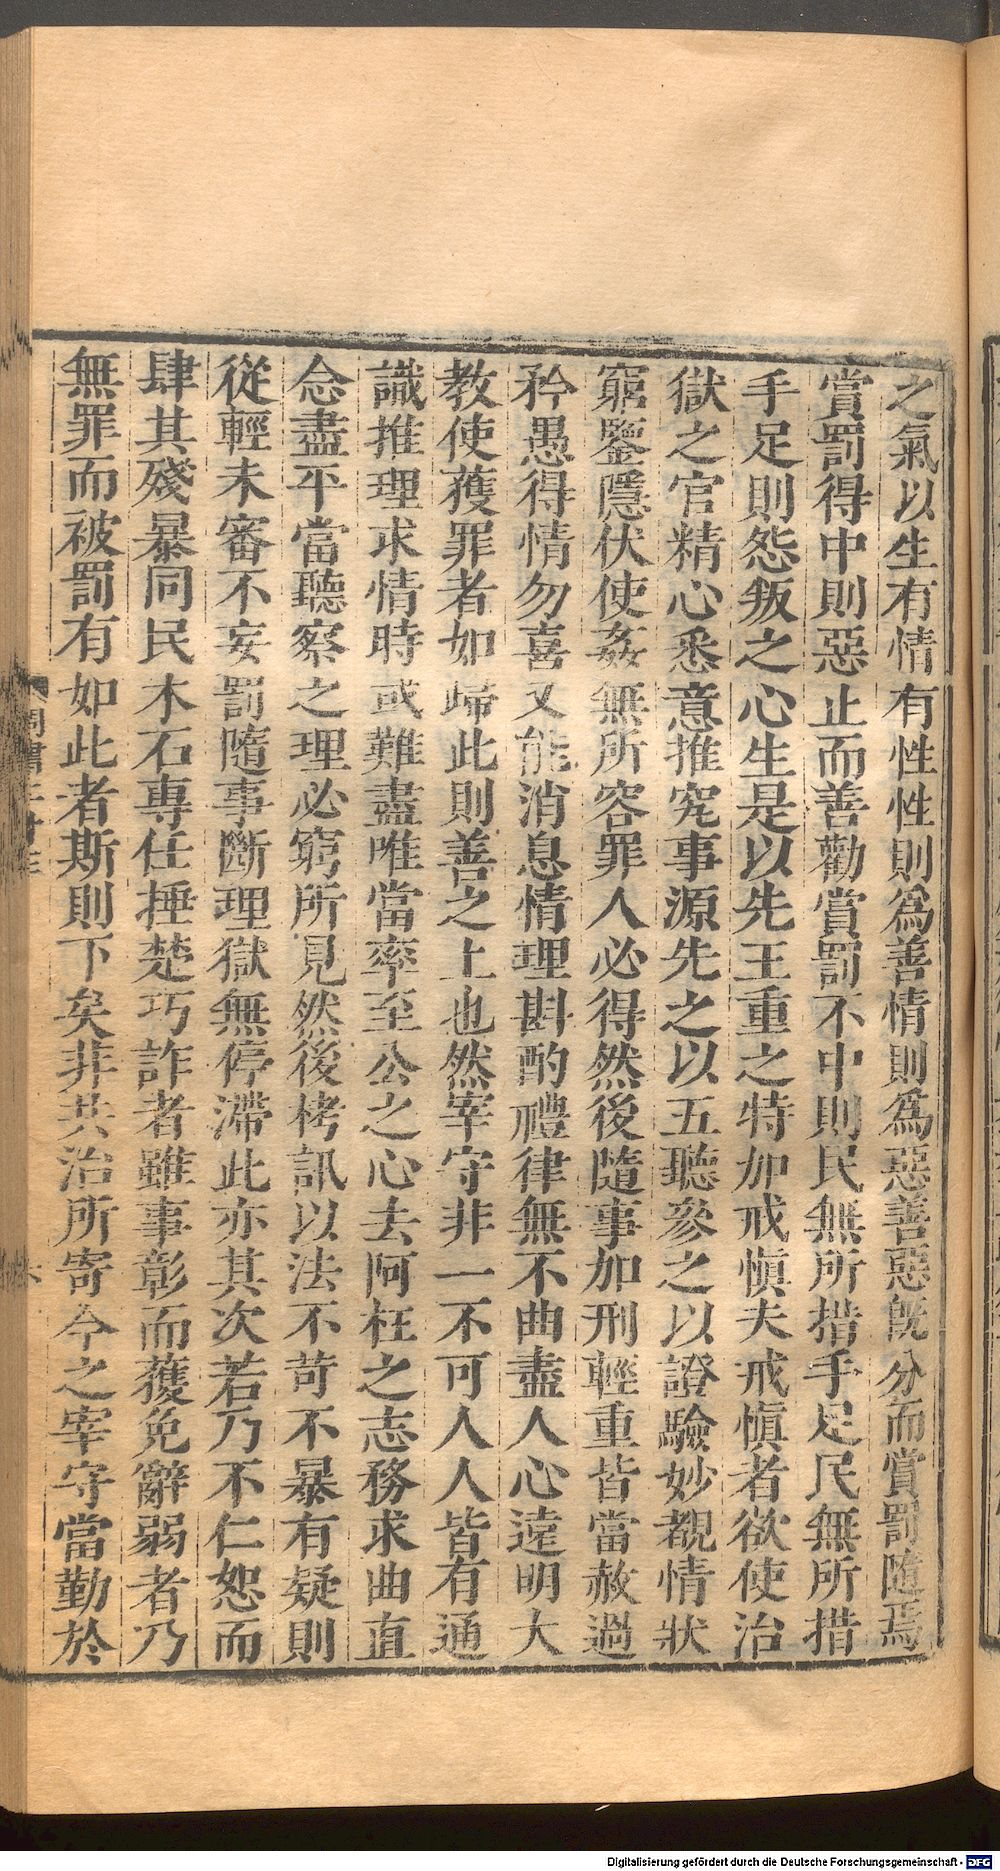 之氣以生有情有性性則爲善情則爲惡善惡旣分而賞罰隨焉
賞罰得中則惡止而善勸賞罰不中則民無所措手足民無所措
手足則怨叛之心生是以先王重之特加戒愼夫戒愼者欲使治
獄之官精心悉意推究事源先之以五聽參之以證驗妙覩情狀
窮鑒隱伏使姦無所容罪人必得然後隨事加刑輕重皆當赦過
矜愚得情勿喜又能消息情理斟酌禮律無不曲盡人心遠明大
教使獲罪者如歸此則善之上也然宰守非一不可人人皆有通
識推理求情時或難盡唯當率至公之心去阿枉之志務求曲直
念盡平當聽察之理必窮所見然後栲訊以法不苛不暴有疑則
從輕未審不妄罰隨事斷理獄無停滯此亦其次若乃不仁恕而
肆其殘暴同民木石專任捶楚巧詐者雖事彰而獲免辭弱者乃
無罪而被罰有如此者斯則下矣非共治所寄今之宰守當勤於
Digitalisierung gefördert durch die Deutsche Forschungsgemeinschaft - DFG